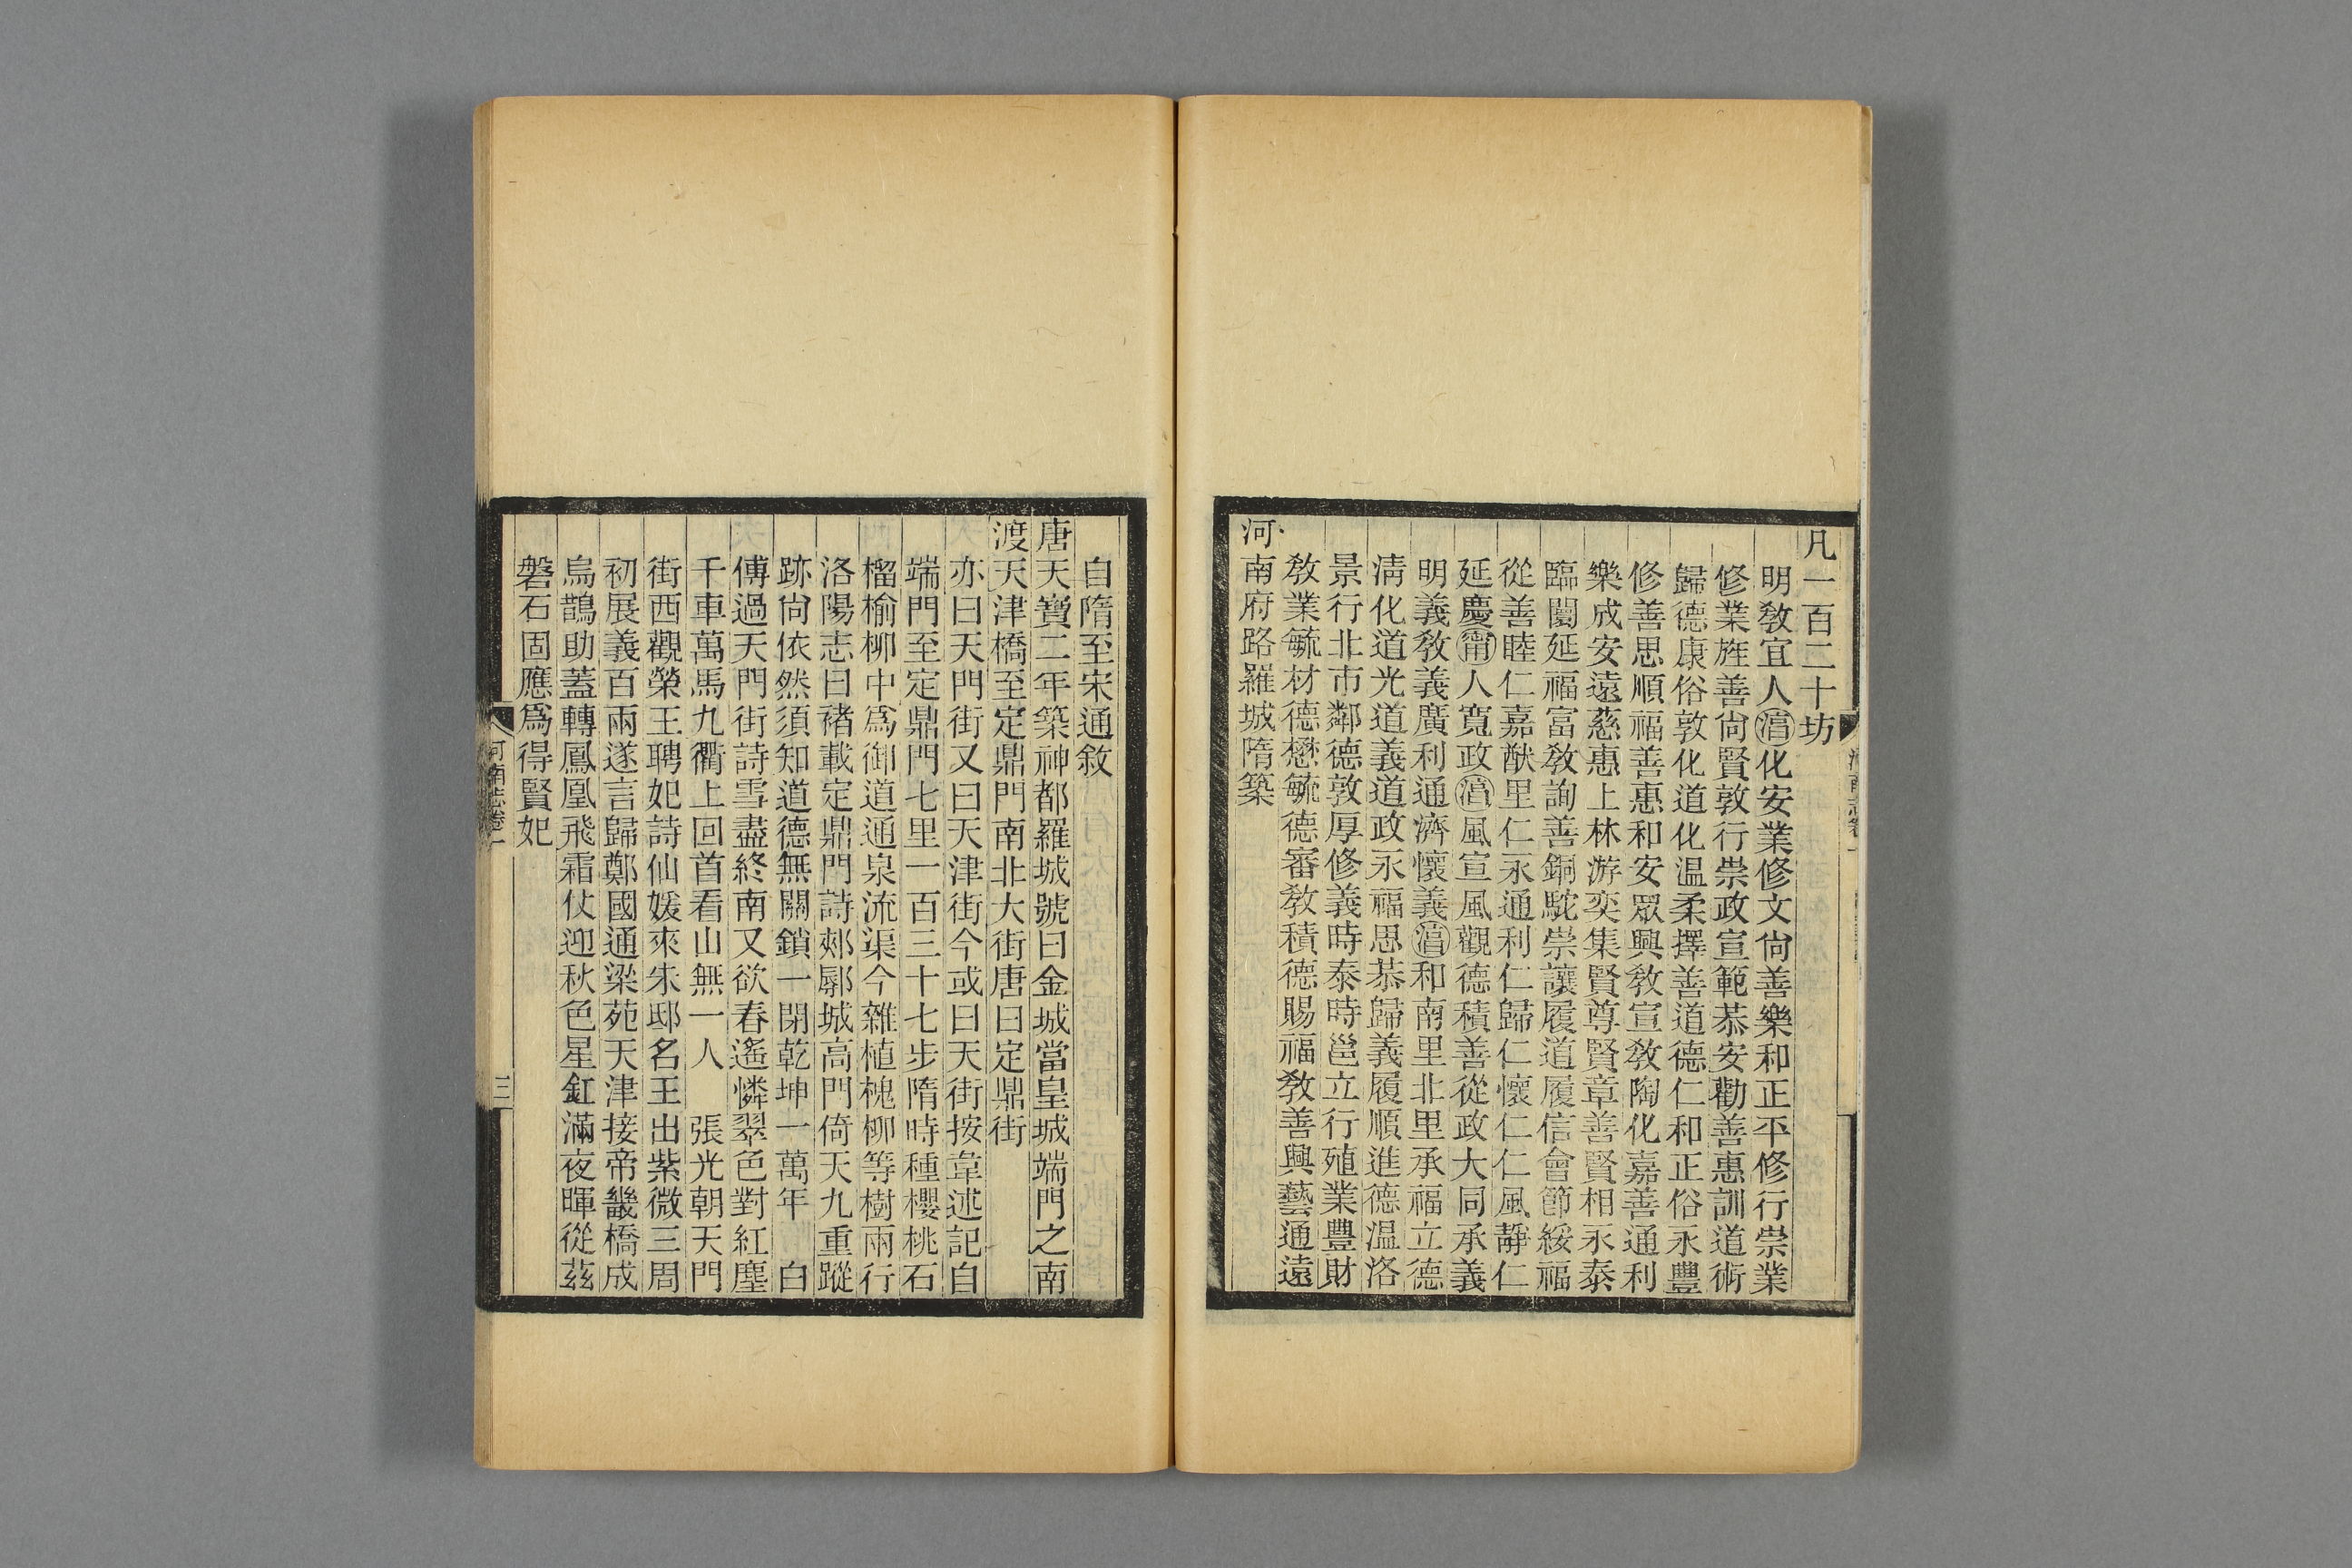 凡一百二十坊
明敎宜人淳化安業修文尙善樂和正平修行崇業
修業旌善尙賢敦行崇政宣範恭安勸善惠訓道術
歸德康俗敦化道化溫柔擇善道德仁和正俗永豐
修善思順福善惠和安眾興敎宣敎陶化嘉善通利
樂成安遠慈惠上林游奕集賢尊賢章善賢相永泰
臨闤延福富敎詢善銅駝崇讓履道履信會節綏福
從善睦仁嘉猷里仁永通利仁歸仁懷仁仁風靜仁
延慶甯人寬政淳風宣風觀德積善從政大同承義
明義敎義廣利通濟懷義淳和南里北里承福立德
淸化道光道義道政永福思恭歸義履順進德溫洛
景行北市鄰德敦厚修義時泰時邕立行殖業豐財
敎業毓材德懋毓德審敎積德賜福敎善興藝通遠
河南府路羅城隋築
自隋至宋通敘
唐天寶二年築神都羅城號曰金城當皇城端門之南
渡天津橋至定鼎門南北大街唐曰定鼎街
亦曰天門街又曰天津街今或曰天街按韋述記自
端門至定鼎門七里一百三十七步隋時種櫻桃石
榴榆柳中爲御道通泉流渠今雜植槐柳等樹兩行
洛陽志曰褚載定鼎門詩郟鄏城高門倚天九重蹤
跡尙依然須知道德無關鎖一閉乾坤一萬年　白
傅過天門街詩雪盡終南又欲春遙憐翠色對紅塵
千車萬馬九衢上回首看山無一人　張光朝天門
街西觀榮王聘妃詩仙媛來朱邸名王出紫微三周
初展義百兩遂言歸鄭國通梁苑天津接帝畿橋成
烏鵲助蓋轉鳳凰飛霜仗迎秋色星釭滿夜暉從茲
磐石固應爲得賢妃
河南志卷一
三